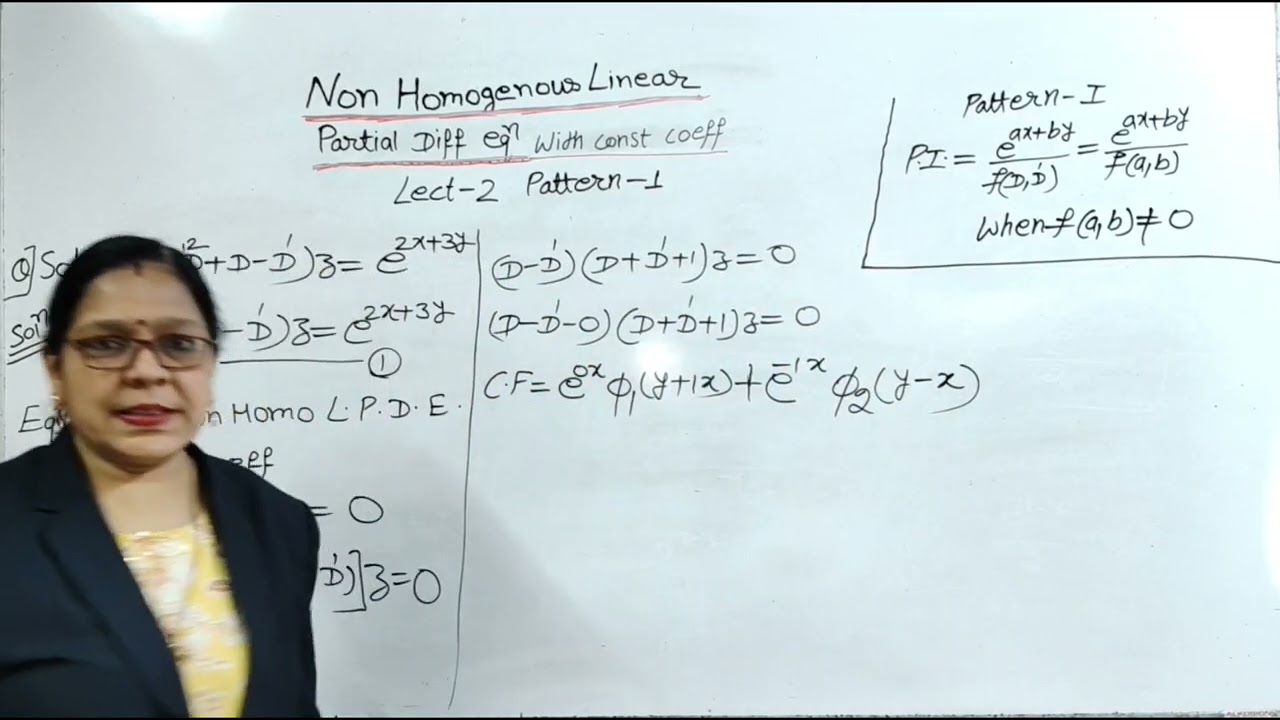 Non Homogenous Linear
Partial Diff eqⁿ With const coeff
Lect-2 Pattern-1
Pattern-I
P.I. = e^(ax+by)/f(D,D') = e^(ax+by)/f(a,b)
When f(a,b)≠0
Q] +D-D')z = e^(2x+3y)
Solⁿ -D')z = e^(2x+3y)
①
Homo L.P.D.E.
= 0
D')]z=0
(D-D')(D+D'+1)z=0
(D-D'-0)(D+D'+1)z=0
C.F = e^(0x) ϕ₁(y+1x)+e^(-1x) ϕ₂(y-x)